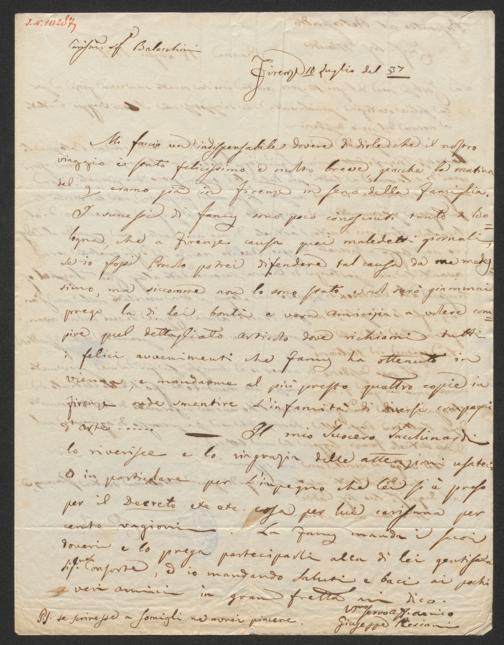 Firenze 10 Luglio del 37
Mi faccio un indispensabile dovere di dirle che il nostro
viaggio è stato felicissimo e molto breve, poiche la matina
del 9 eramo già in Firenze in seno della Famiglia.
I sucessi di Fanny sono poco conosciuti tanto a Bo=
logna, che a Firenze causa quei maledetti giornali
se io fossi potrei difendere tal causa da me mede
simo, ma siccome non lo sono stato e non sarò giammai
prego la di lei bontà e vera amicizia a volere com=
pire quel dettagliato articolo dove richiami tutti
i felici avvenimenti che Fanny ha ottenuto in
Vienna e mandarne al più presto quattro copie in
Firenze onde smentire l'infamità di diversi compagni
d'arte ..... — Il mio Suocero Tacchinardi
lo riverisce e lo ringrazia delle attenzioni usate
e in particolare per l'impegno che lei si è preso
per il decreto etc etc. cosa per lui carissima per
cento ragioni. La Fanny manda i suoi
doveri e lo prega parteciparli alla di lei gentilissima
Sigra Consorte, ed io mandando saluti e baci ai pochi
veri amici in gran fretta mi dico.
Giuseppe Persiani
PS. se scrivesse a Somigli mi farà piacere.